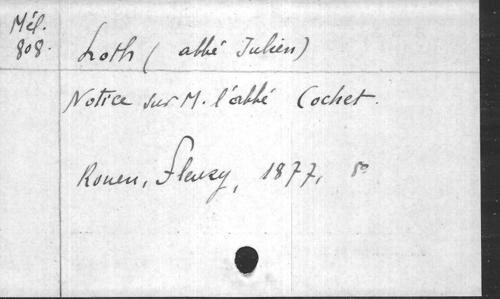 Mél.
808.
Loth (abbé Julien)
Notice sur M. l'abbé Cochet.
Rouen, Fleury, 1877, 8°